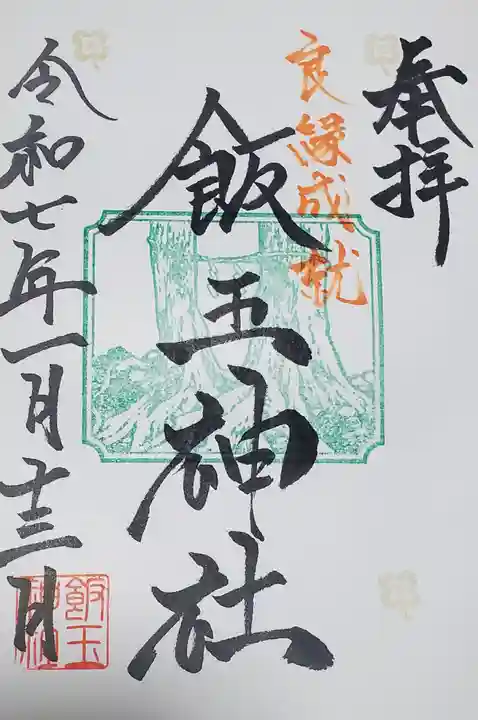 奉拝
良縁成就
飯玉神社
令和七年一月十三日
飯玉
神社